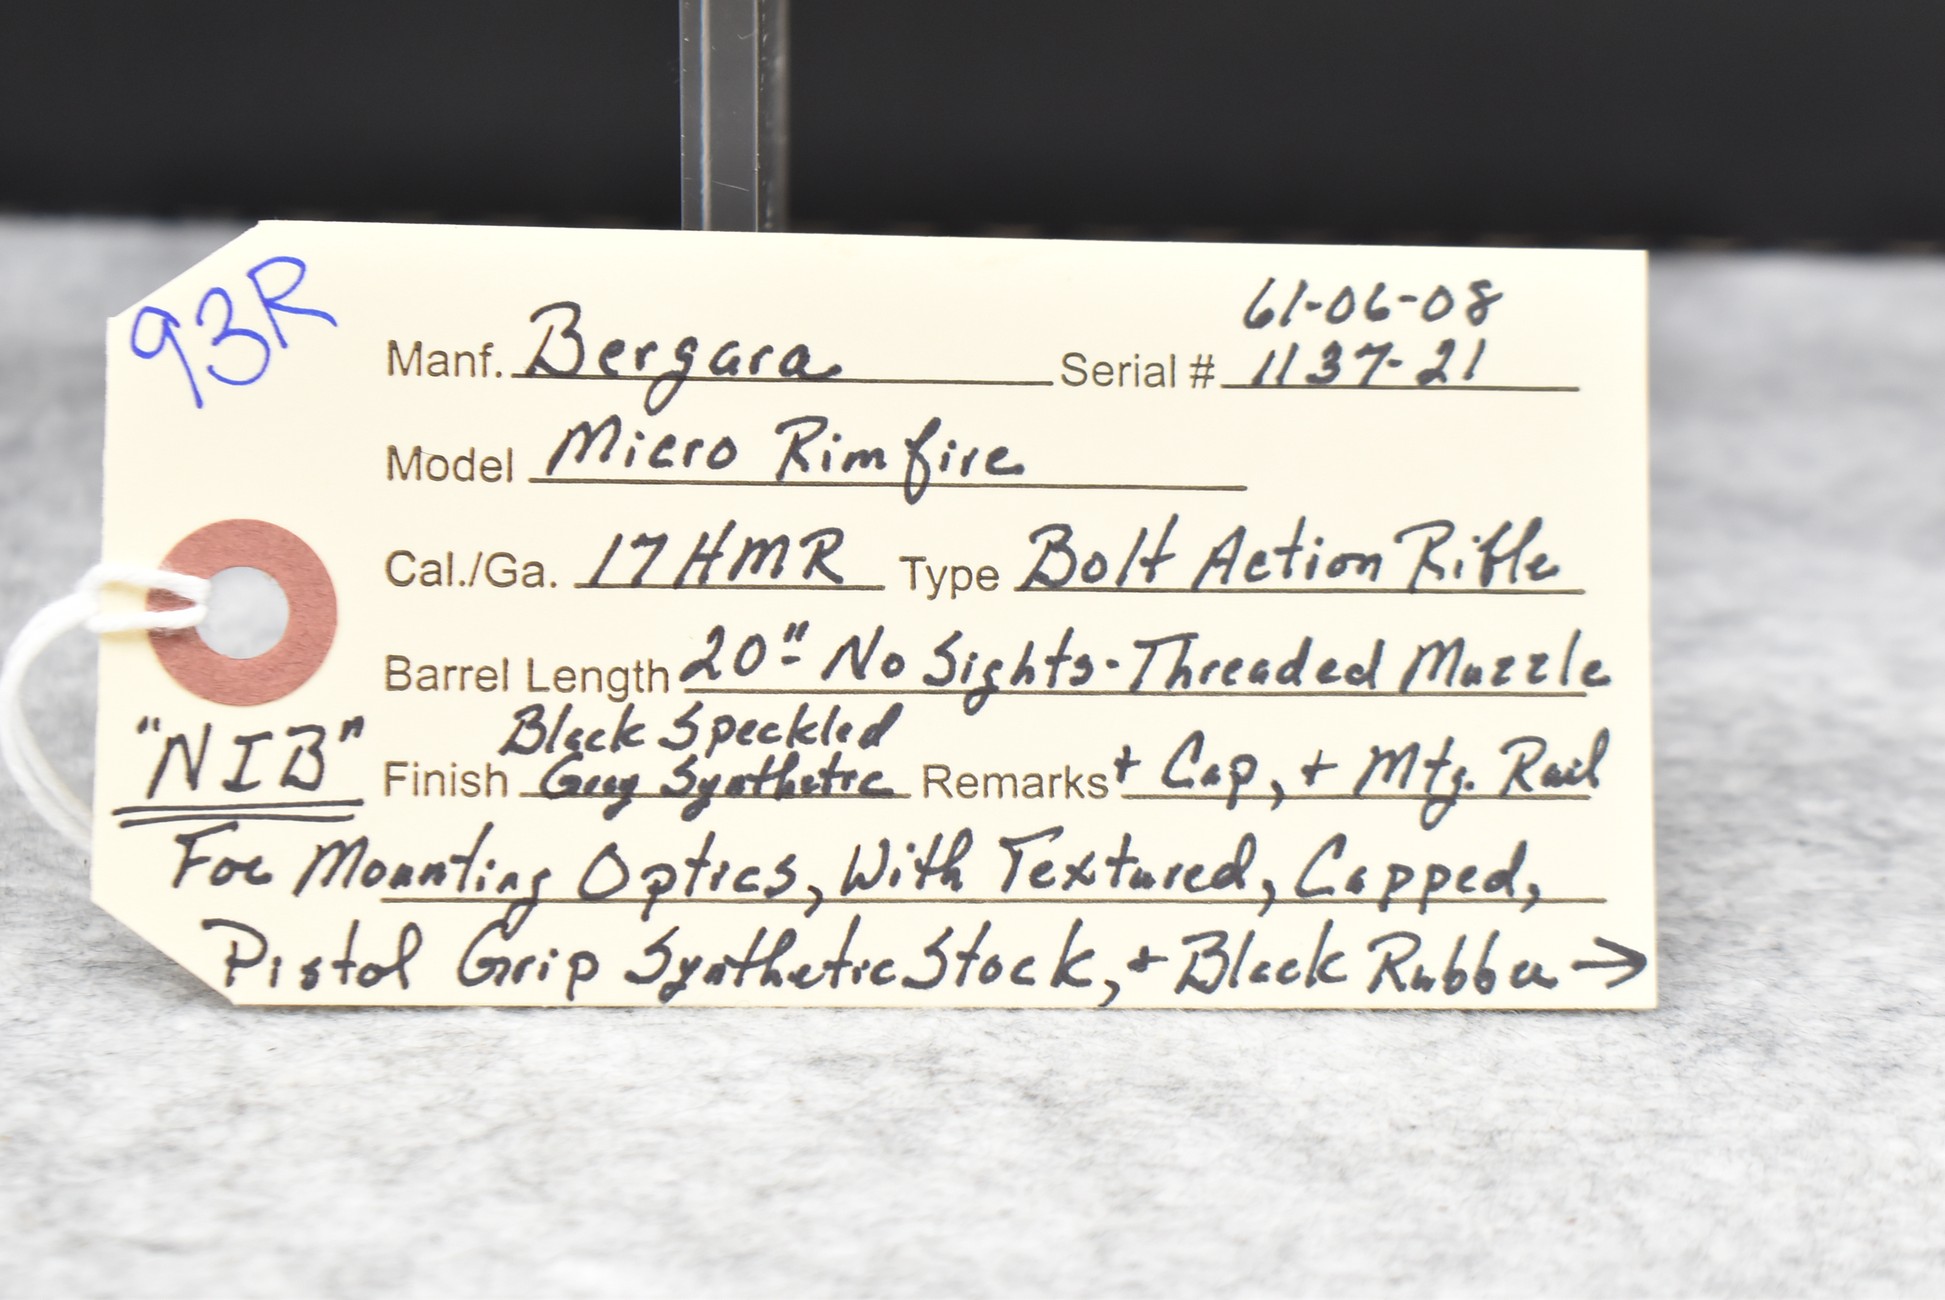 93R
61-06-08
Manf. Bergara Serial # 1137-21
Model Micro Rimfire
Cal./Ga. 17HMR Type Bolt Action Rifle
Barrel Length 20"- No Sights-Threaded Muzzle
Black Speckled
"NIB" Finish Gray Synthetic Remarks + Cap, + Mtg. Rail
For Mounting Optics, With Textured, Capped,
Pistol Grip Synthetic Stock, + Black Rubber →